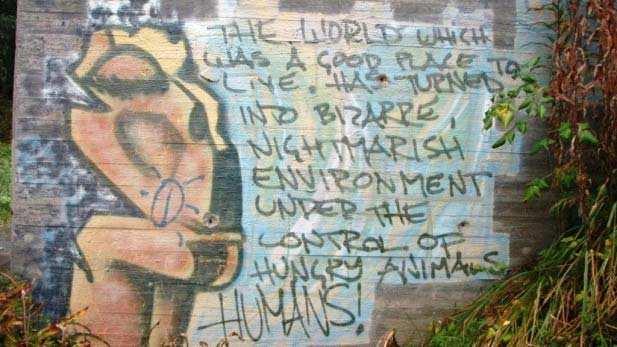 THE WORLD WHICH
WAS A GOOD PLACE TO
LIVE. HAS TURNED
INTO BIZARRE,
NIGHTMARISH
ENVIRONMENT
UNDER THE
CONTROL OF
HUNGRY ANIMALS
HUMANS!